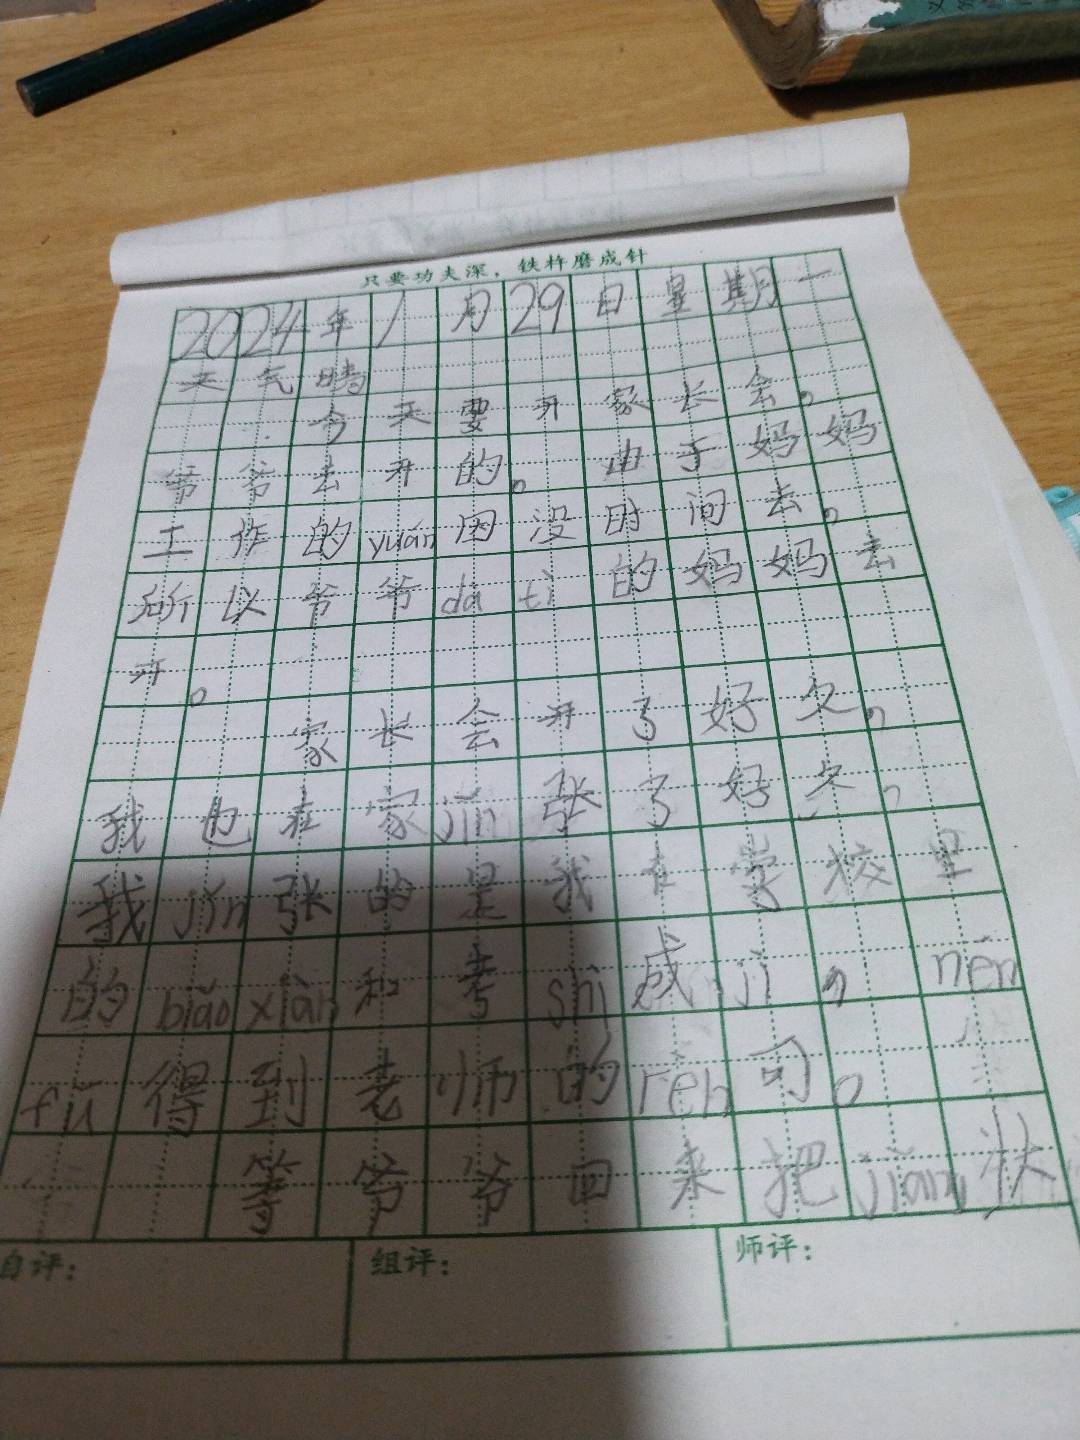 只要功夫深，铁杵磨成针
2024年1月29日星期一
天气晴
今天要开家长会。
爷爷去开的。由于妈妈
工作的yuán因没时间去。
所以爷爷dài tì的妈妈去
开。
家长会开了好久，
我也在家jǐn张了好久，
我jǐn张的是我在学校里
的biǎo xiàn和考shì成jì，néng
fǔ得到老师的rèn可。
等爷爷回来把jiǎng状
自评：
组评：
师评：